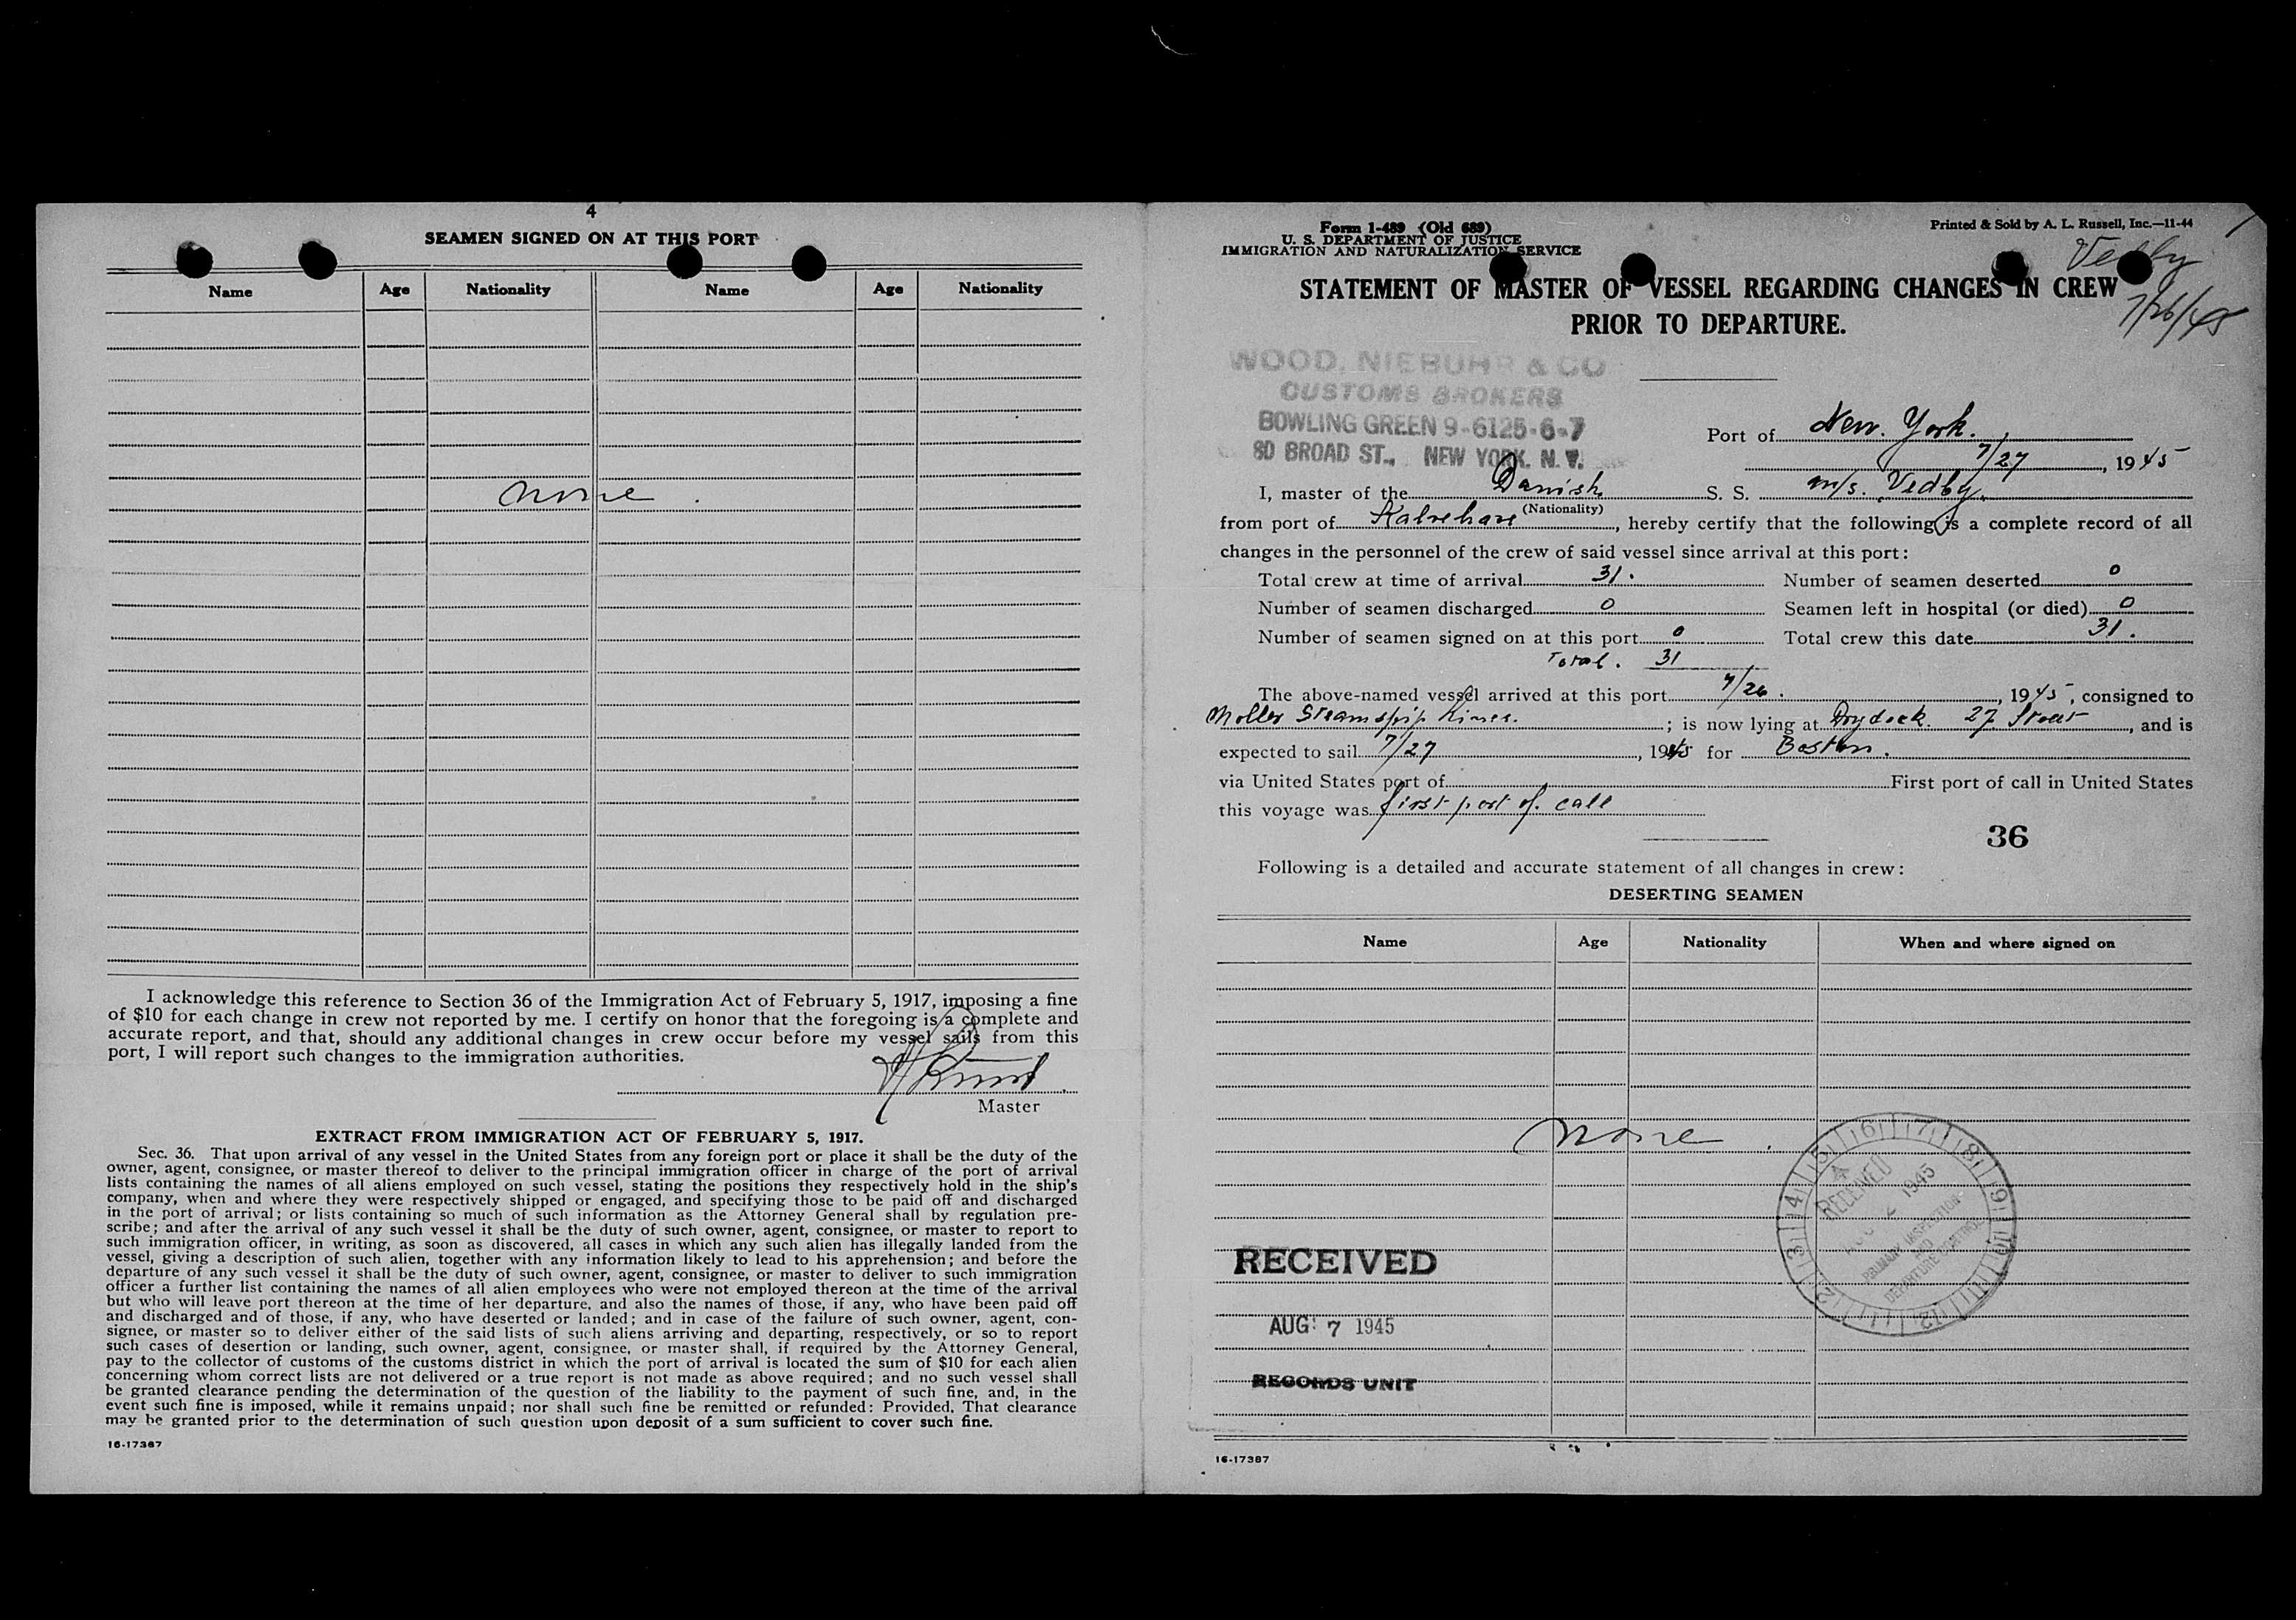 4
SEAMEN SIGNED ON AT THIS PORT
Name Age Nationality Name Age Nationality
none .
I acknowledge this reference to Section 36 of the Immigration Act of February 5, 1917, imposing a fine
of $10 for each change in crew not reported by me. I certify on honor that the foregoing is a complete and
accurate report, and that, should any additional changes in crew occur before my vessel sails from this
port, I will report such changes to the immigration authorities.
Master
EXTRACT FROM IMMIGRATION ACT OF FEBRUARY 5, 1917.
Sec. 36. That upon arrival of any vessel in the United States from any foreign port or place it shall be the duty of the
owner, agent, consignee, or master thereof to deliver to the principal immigration officer in charge of the port of arrival
lists containing the names of all aliens employed on such vessel, stating the positions they respectively hold in the ship's
company, when and where they were respectively shipped or engaged, and specifying those to be paid off and discharged
in the port of arrival; or lists containing so much of such information as the Attorney General shall by regulation pre-
scribe; and after the arrival of any such vessel it shall be the duty of such owner, agent, consignee, or master to report to
such immigration officer, in writing, as soon as discovered, all cases in which any such alien has illegally landed from the
vessel, giving a description of such alien, together with any information likely to lead to his apprehension; and before the
departure of any such vessel it shall be the duty of such owner, agent, consignee, or master to deliver to such immigration
officer a further list containing the names of all alien employees who were not employed thereon at the time of the arrival
but who will leave port thereon at the time of her departure, and also the names of those, if any, who have been paid off
and discharged and of those, if any, who have deserted or landed; and in case of the failure of such owner, agent, con-
signee, or master so to deliver either of the said lists of such aliens arriving and departing, respectively, or so to report
such cases of desertion or landing, such owner, agent, consignee, or master shall, if required by the Attorney General,
pay to the collector of customs of the customs district in which the port of arrival is located the sum of $10 for each alien
concerning whom correct lists are not delivered or a true report is not made as above required; and no such vessel shall
be granted clearance pending the determination of the question of the liability to the payment of such fine, and, in the
event such fine is imposed, while it remains unpaid; nor shall such fine be remitted or refunded: Provided, That clearance
may be granted prior to the determination of such question upon deposit of a sum sufficient to cover such fine.
16-17387
Form 1-489 (Old 689)
U. S. DEPARTMENT OF JUSTICE
IMMIGRATION AND NATURALIZATION SERVICE
Printed & Sold by A. L. Russell, Inc.—11-44
Vedby
7/26/45
STATEMENT OF MASTER OF VESSEL REGARDING CHANGES IN CREW
PRIOR TO DEPARTURE.
WOOD, NIEBUHR & CO
CUSTOMS BROKERS
BOWLING GREEN 9-6125-6-7
80 BROAD ST., NEW YORK. N. Y.
Port of New. York.
7/27, 1945
I, master of the Danish S. S. m/s. Vedby.
(Nationality)
from port of Kalvehave, hereby certify that the following is a complete record of all
changes in the personnel of the crew of said vessel since arrival at this port:
Total crew at time of arrival 31. Number of seamen deserted 0
Number of seamen discharged 0 Seamen left in hospital (or died) 0
Number of seamen signed on at this port 0 Total crew this date 31.
Total. 31
The above-named vessel arrived at this port 7/26., 1945, consigned to
Moller Steamship Lines.; is now lying at Drydock. 27 Street, and is
expected to sail 7/27, 1945 for Boston.
via United States port of First port of call in United States
this voyage was first port of. call
36
Following is a detailed and accurate statement of all changes in crew:
DESERTING SEAMEN
Name Age Nationality When and where signed on
none .
4 5 6 7 8 9 10 11 12 2 3
A
RECEIVED
AUG 2 1945
PRIMARY INSPECTION
AND
DEPARTURE CONTROL
RECEIVED
AUG 7 1945
RECORDS UNIT
16-17387